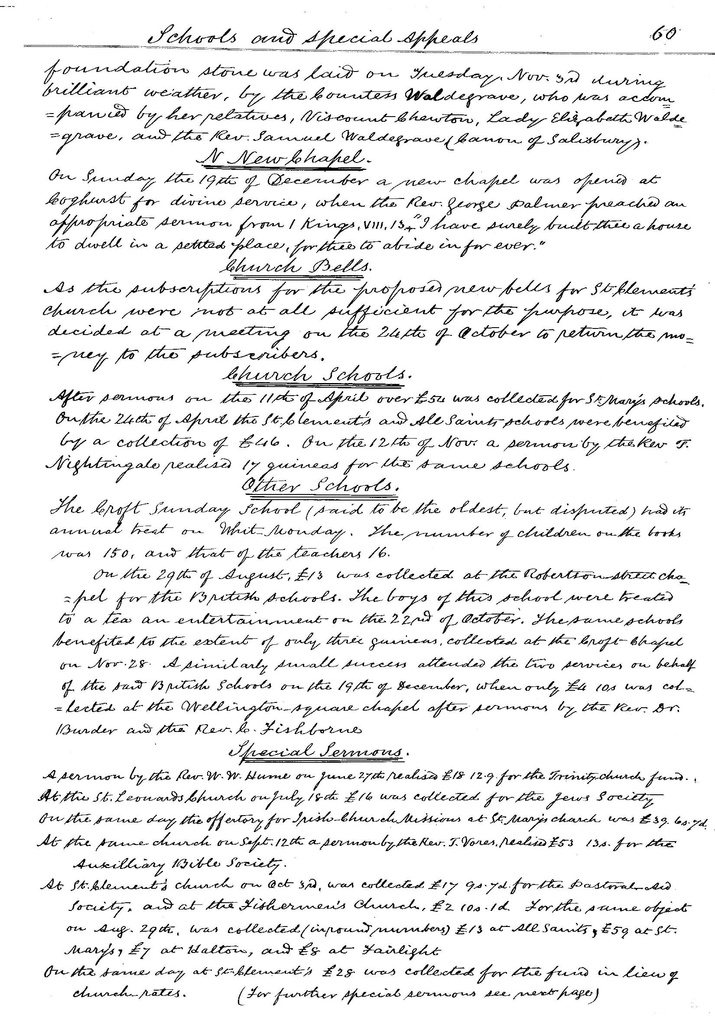 Schools and special Appeals 60
foundation stone was laid on Tuesday, Nov. 3rd during
brilliant weather, by the Countess Waldegrave, who was accom
=panied by her relatives, Viscount Chewton, Lady Elizabath Walde
=grave, and the Rev. Samuel Waldegrave (Canon of Salisbury).
N New Chapel.
On Sunday the 19th of December a new chapel was opened at
Coghurst for divine service, when the Rev. George Palmer preached an
appropriate sermon from 1 Kings, VIII, 13, "I have surely built thee a house
to dwell in a settled place, for thee to abide in for ever."
Church Bells.
As the subscriptions for the proposed new bells for St. Clement's
church were not at all sufficient for the purpose, it was
decided at a meeting on the 24th of October to return the mo=
=ney to the subscribers.
Church Schools.
After sermons on the 11th of April over £54 was collected for St. Mary's schools.
On the 24th of April the St. Clement's and All Saints schools were benefited
by a collection of £46. On the 12th of Nov. a sermon by the Rev. T.
Nightingale realised 17 guineas for the same schools.
Other Schools.
The Croft Sunday School (said to be the oldest, but disputed) had its
annual treat on Whit-Monday. The number of children on the books
was 150, and that of the teachers 16.
On the 29th of August, £13 was collected at the Robertson-street cha=
=pel for the British schools. The boys of this school were treated
to a tea an entertainment on the 22nd of October. The same schools
benefited to the extent of only three guineas, collected at the Croft Chapel
on Nov. 28. A similarly small success attended the two services on behalf
of the said British Schools on the 19th of December, when only £4 10s was col=
=lected at the Wellington-square chapel after sermons by the Rev. Dr.
Burder and the Rev. C. Fishborne
Special Sermons.
A sermon by the Rev. W. W. Hume on June 27th realised £18 12.9. for the Trinity church fund.
At the St. Leonards Church on July 18th £16 was collected for the Jews Society
On the same day the offertory for Irish-Church Missions at St. Mary's church was £39. 6s. 7d.
At the same church on Sept. 12th a sermon by the Rev. T. Vores, realised £53 13s. for the
Auxilliary Bible Society.
At St. Clement's church on Oct 3rd, was collected £17 9s. 7d for the Pastoral-Aid
Society, and at the Fishermen's Church, £2 10s. 1d. For the same object
on Aug. 29th, was collected (in round numbers) £13 at All Sanits, £59 at St.
Mary's, £7 at Halton, and £8 at Fairlight
On the same day at St. Clement's £28 was collected for the fund in lieu of
church-rates. (For further special sermons see next page)